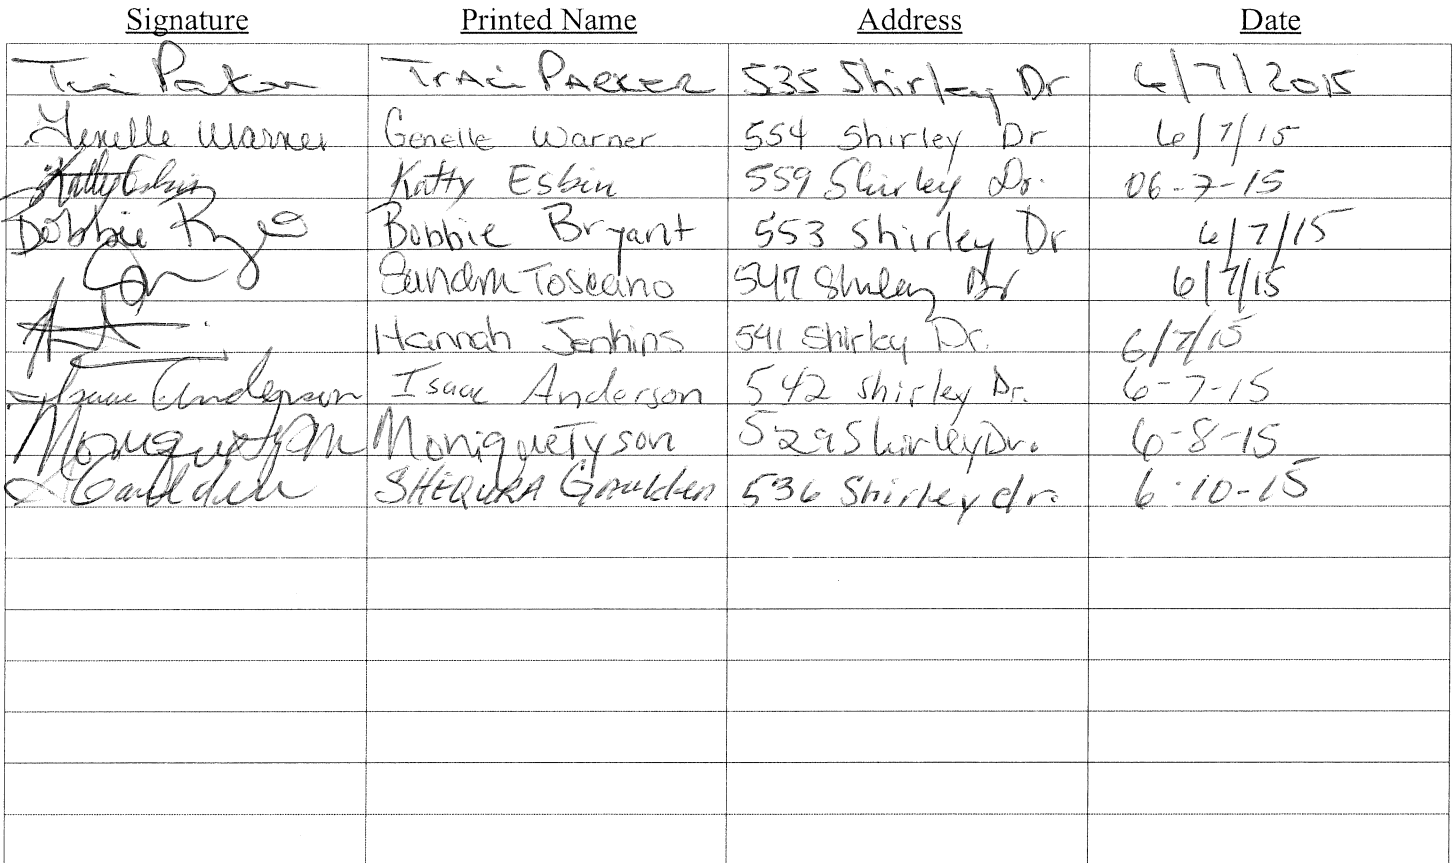 Signature Printed Name Address Date
Traci Parker TRACi PARKER 535 Shirley Dr 6/7/2015
Genelle Warner Genelle Warner 554 Shirley Dr 6/7/15
Katty Esbin Katty Esbin 559 Shirley Dr. 06-7-15
Bobbie Bobbie Bryant 553 Shirley Dr 6/7/15
Sandra Toscano 547 Shirley Dr 6/7/15
Hannah Jenkins 541 Shirley Dr. 6/7/15
Isaac Anderson Isaac Anderson 542 Shirley Dr. 6-7-15
Monique Monique Tyson 529 Shirley Dr. 6-8-15
Gaulden SHEQURA Gaulden 536 Shirley dr. 6-10-15